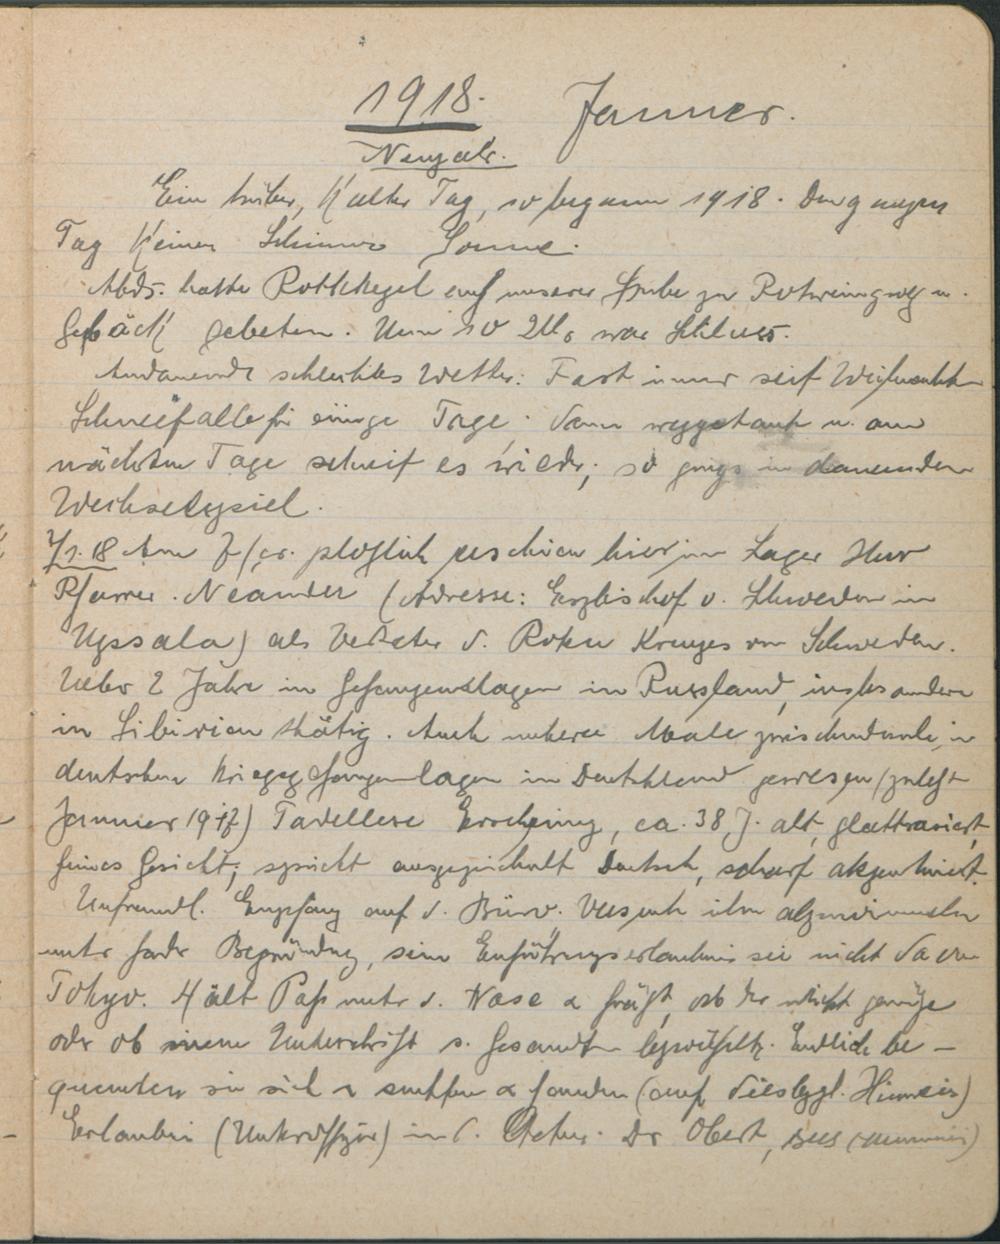 1918. Januar.
Neujahr.
Ein trüber, kalter Tag, so begann 1918. Den ganzen
Tag keinen Schimmer Sonne.
Abds. hatte Rottkegel auf unserer Stube zu Rotweingrog u.
Gebäck gebeten. Um 10 Uhr war Schluss.
Andauernde schlechtes Wetter: Fast immer seit Weihnachten
Schneefälle für einige Tage. Dann weggetaut u. am
nächsten Tage schneit es wieder; so gings in dauernden
Wechselspiel.
7/1.18 Am 7/ca. plötzlich erschien hier im Lager Herr
Pfarrer. Neander (Adresse: Erzbischof v. Schweden in
Upsala) als Vertreter d. Roten Kreuzes von Schweden.
Ueber 2 Jahre in Gefangenenlagern in Russland, insbesondere
in Sibirien thätig. Auch mehrere Male zwischendurch in
deutschen Kriegsgefangenenlagern in Deutschland gewesen (zuletzt
Januar 1917) Tadellose Erscheinung, ca. 38 J. alt, glattrasiert,
feines Gesicht, spricht ausgezeichnet Deutsch, scharf akzentuiert.
Unfreundl. Empfang auf d. Büro. Versuch ihn abzuwimmeln
unter Begründung, seine Einführungserlaubnis sei nicht da von
Tokyo. Hält Pass unter d. Nase & frägt, ob der nicht genüge
oder ob man Unterschrift s. Gesandten bezweifelt. Endlich be-
quemten sie sich & suchten & fanden (auf diesbzgl. Hinweis)
Erlaubnis (Unteroffizier) in d. Akten. Der Oberst,